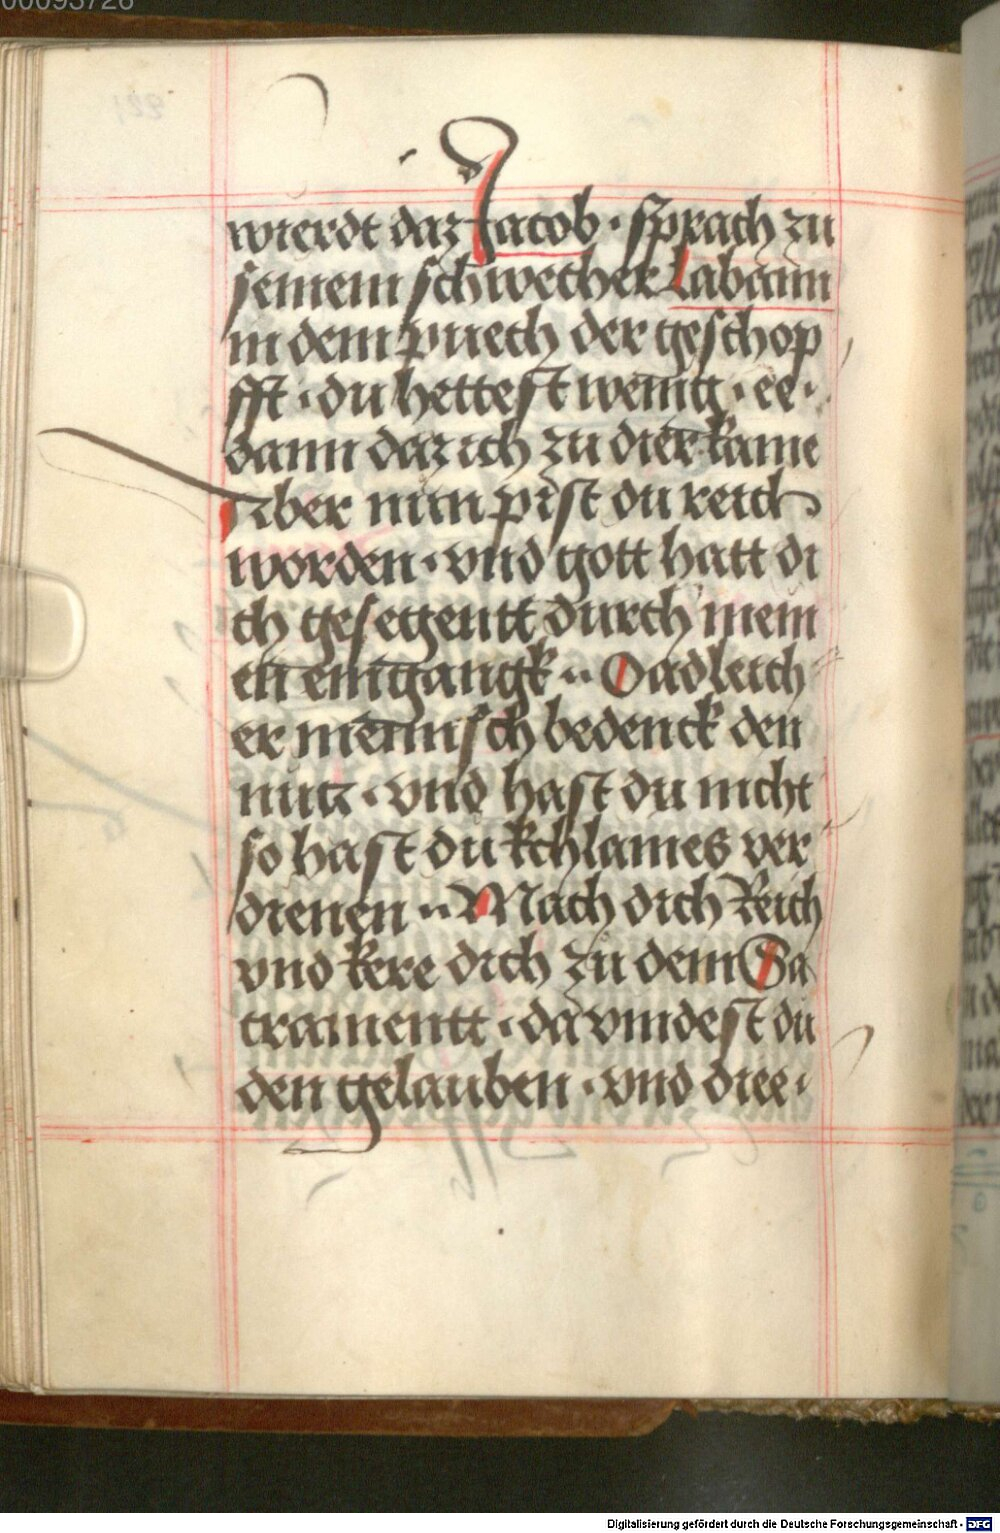 00093726
wierdt daz Jacob · sprach zu
seinem schwecher Labann
in dem puech der geschop
fft · du hettest wenig · ee ·
dann daz ich zu dier kame
Aber nun pist du reich
worden · vnd gott hatt di
ch gesegentt durch mein
en eingangk ·· O adleich
er mennsch bedenck den
nutz · vnd hast du nicht
so hast du kchlaines ver
dienen ·· Mach dich Reich
vnd kere dich zu dem Sa
cramentt · da vindest du
den gelauben · vnd diee ·
Digitalisierung gefördert durch die Deutsche Forschungsgemeinschaft - DFG